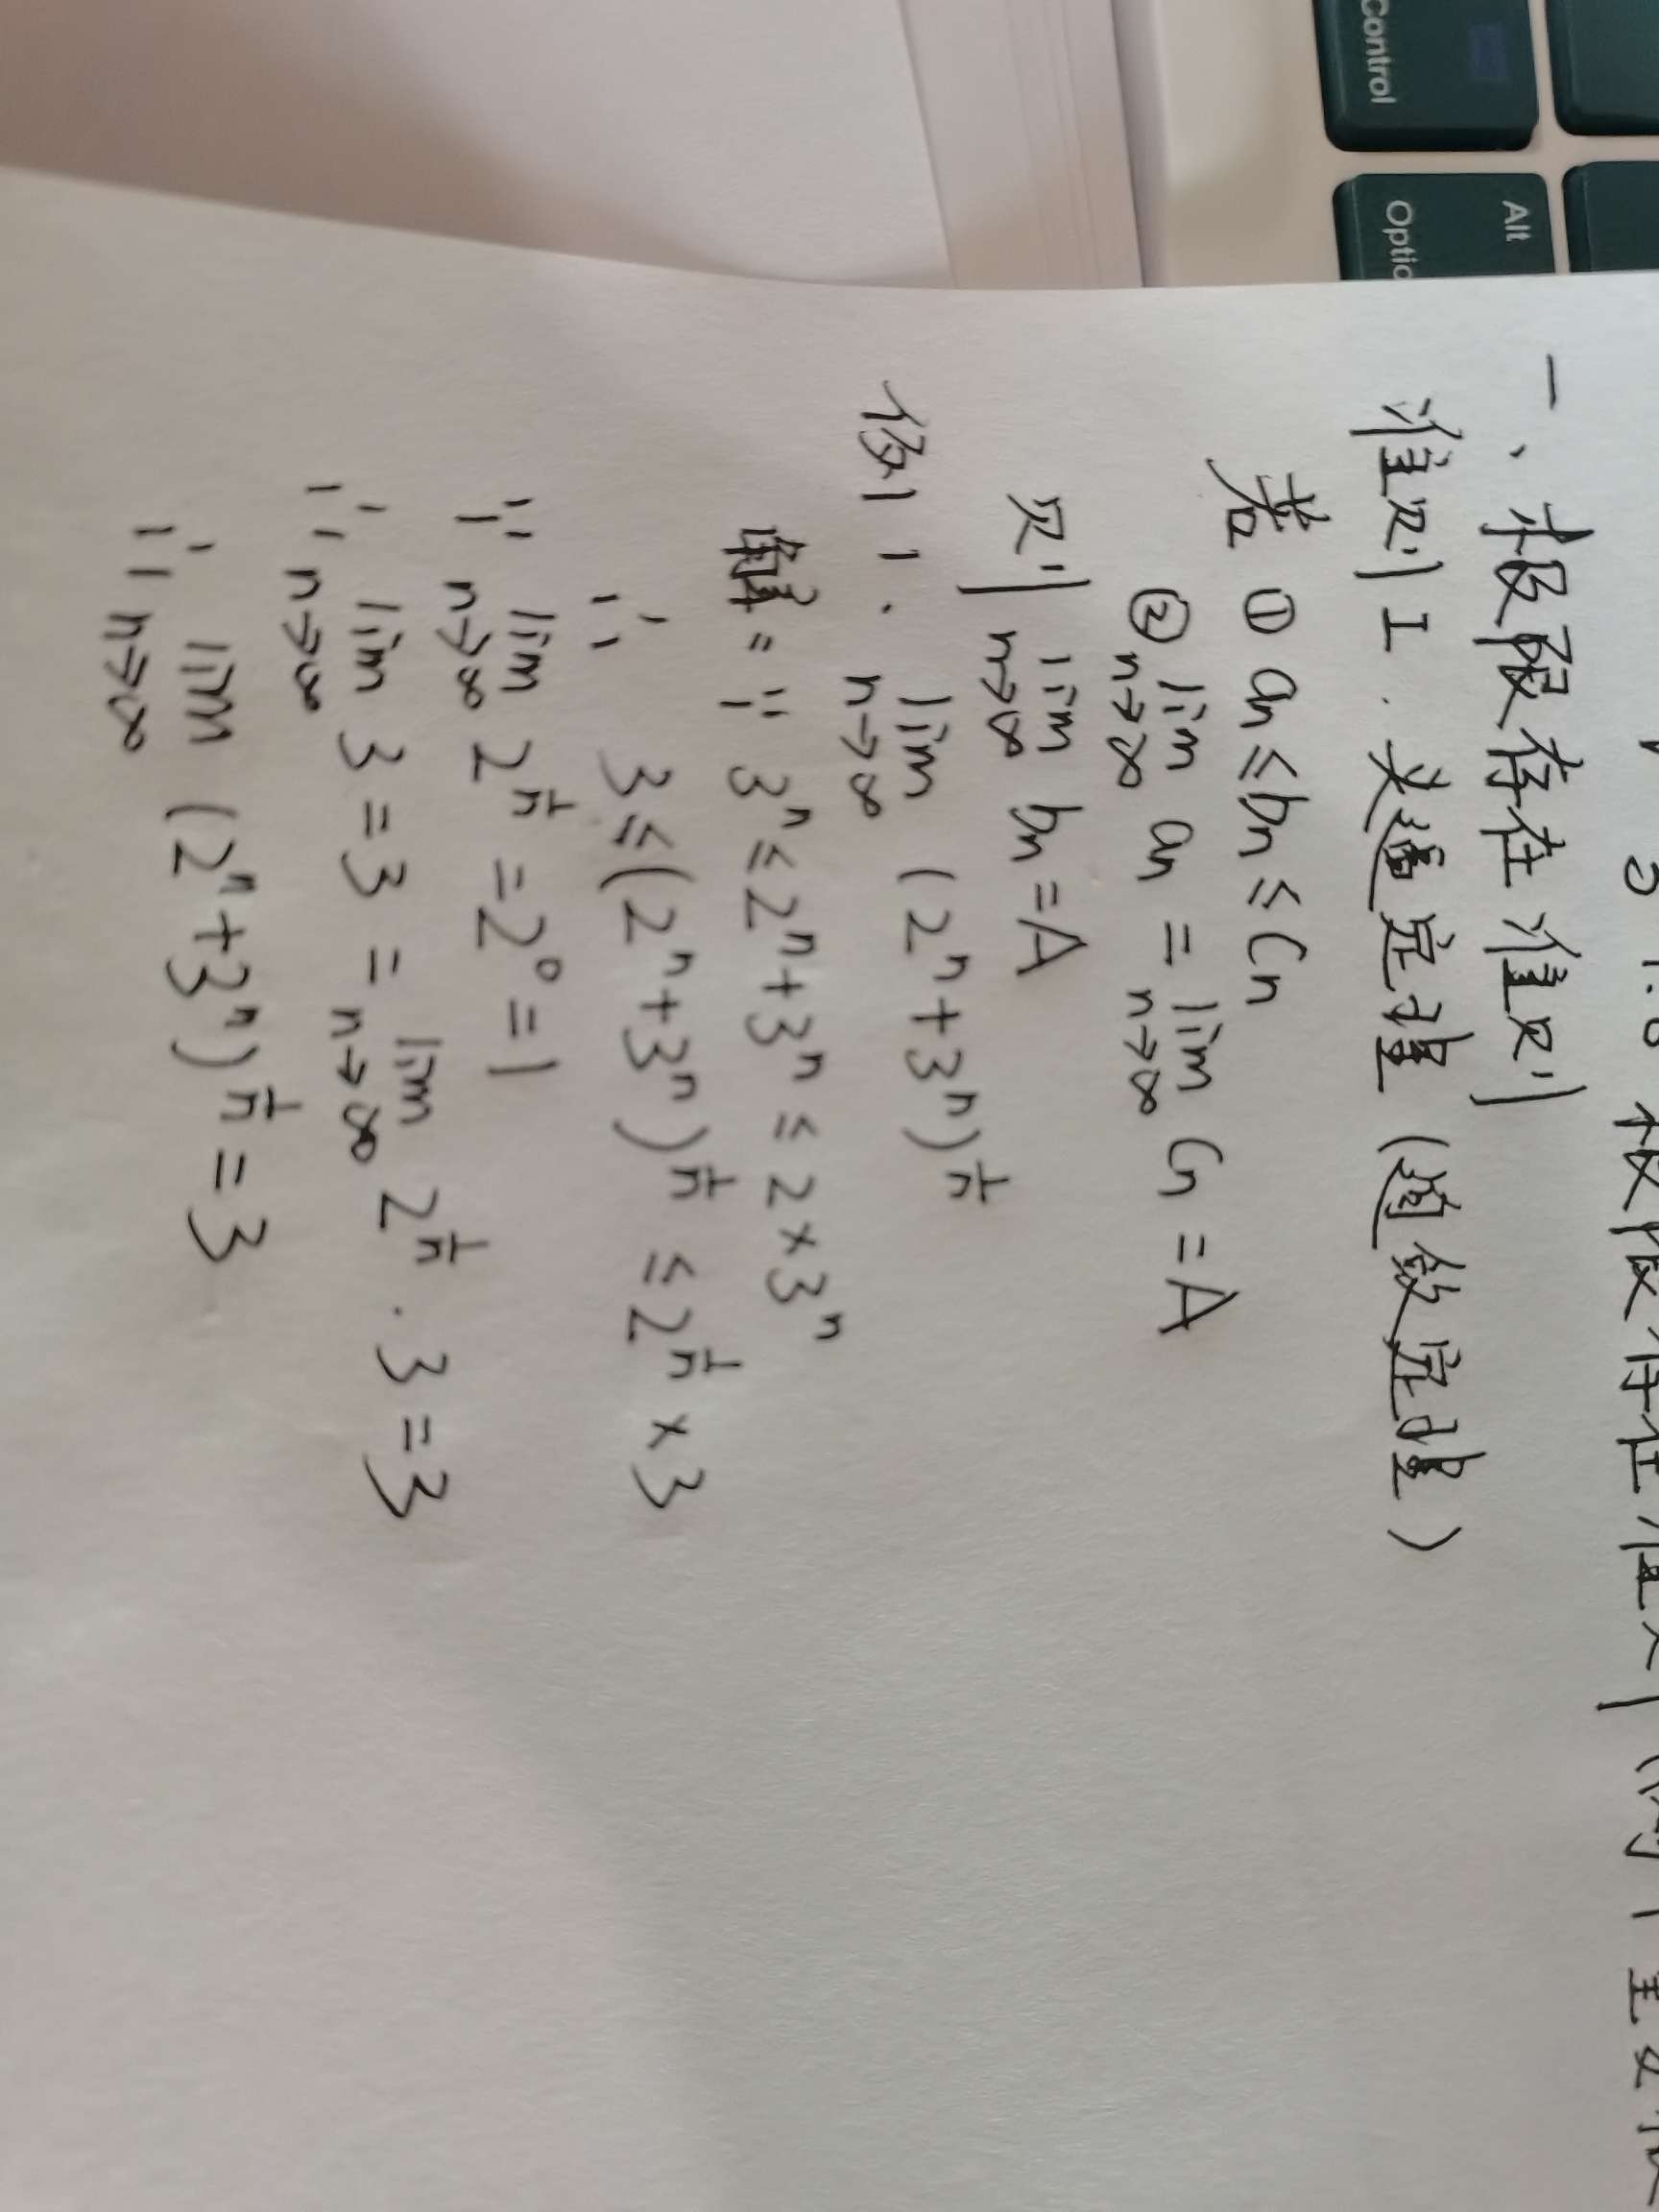 Control
Alt
Optio
1.6 极限存在准则(两个重要极
一、极限存在准则
准则I.夹逼定理(遒敛定理)
若 ① an≤bn≤Cn
② lim n→∞ an = lim n→∞ Cn = A
则 lim n→∞ bn = A
例1. lim n→∞ (2ⁿ+3ⁿ)^(1/n)
解: ∵ 3ⁿ≤2ⁿ+3ⁿ≤2×3ⁿ
∴ 3≤(2ⁿ+3ⁿ)^(1/n)≤2^(1/n)×3
∵ lim n→∞ 2^(1/n) = 2⁰ = 1
∴ lim n→∞ 3 = 3 = lim n→∞ 2^(1/n) · 3 = 3
∴ lim n→∞ (2ⁿ+3ⁿ)^(1/n) = 3